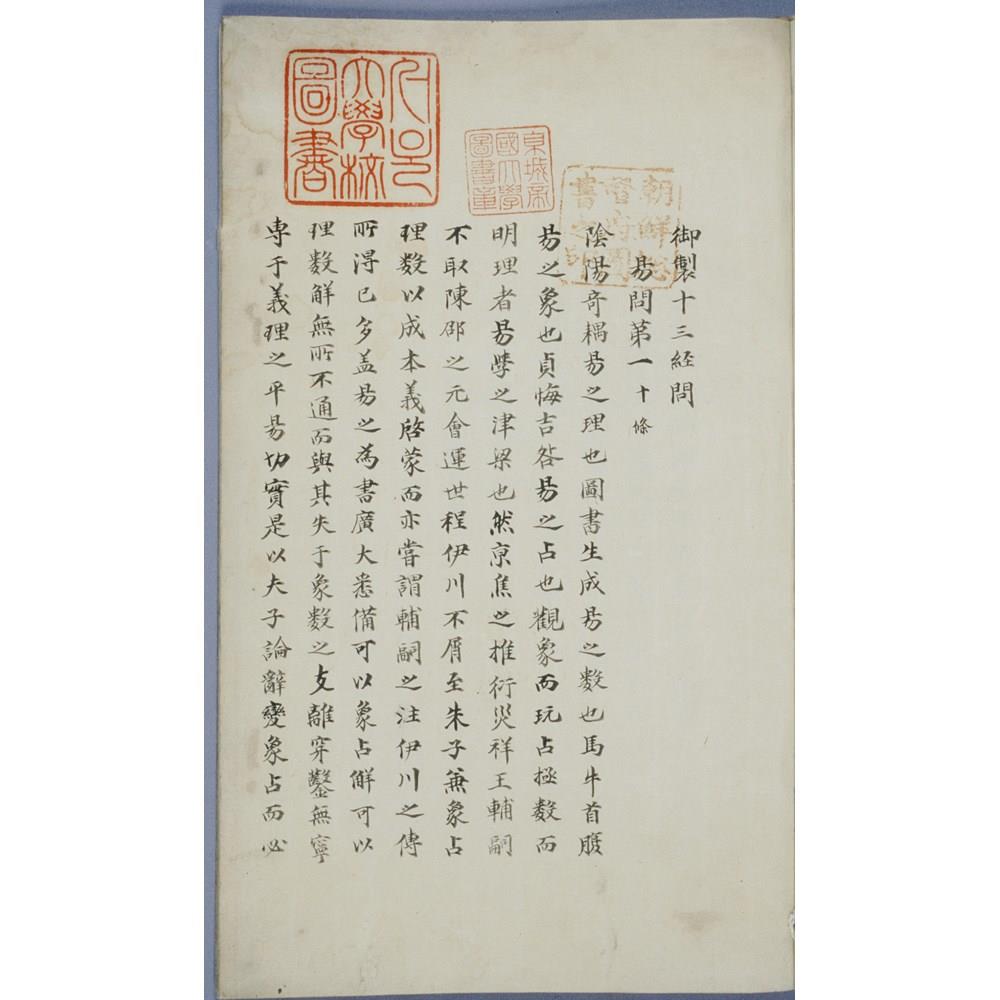 御製十三経問
易問第一 十條
陰陽奇耦易之理也圖書生成易之数也馬牛首腹
易之象也貞悔吉咎易之占也觀象而玩占極数而
明理者易學之津梁也然京焦之推衍災祥王輔嗣
不取陳邵之元會運世程伊川不屑至朱子兼象占
理数以成本義啓蒙而亦嘗謂輔嗣之注伊川之傳
所得已多盖易之為書廣大悉備可以象占解可以
理数解無所不通而與其失于象数之支離穿鑿無寧
専于義理之平易切實是以夫子論辭變象占而必
朝鮮総督府圖書之印
京城帝國大學圖書章
서울大學校圖書